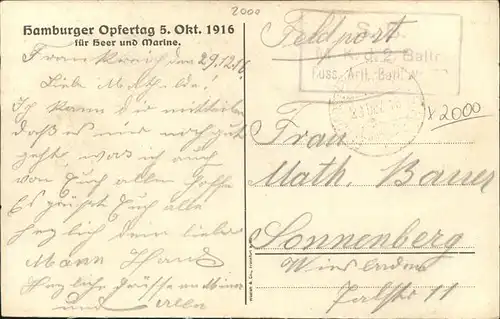 2000
Hamburger Opfertag 5. Okt. 1916
für Heer und Marine.
Frankreich den 29.12.16
Liebe Mathilde!
Ich kann dir mitteilen
daß es mir noch gut
geht, was ich auch
von Euch allen hoffe
Es grüßt Euch alle
herzlich dein lieber
Mann Hans
Herzliche Grüsse an
und alle
Feldpost
S. B.
d. 2. Battr.
Fuss. Artl. Batl.
x 2000
Frau
Math. Bauer
Sonnenberg
Wiesbaden
Talstr 11